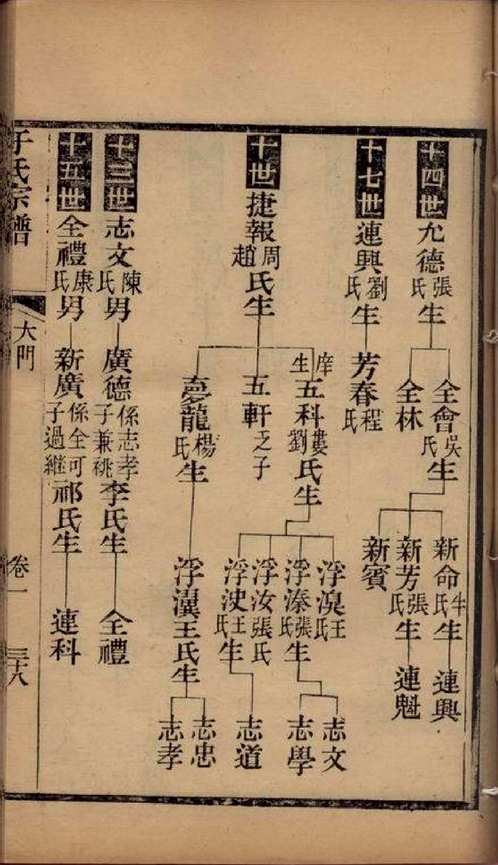 十四世 允德張氏生 全會吳氏生 新命牛氏生 連興
新芳張氏生 連魁
新賓
全林
十七世 連興劉氏生 芳春程氏
十世 捷報周趙氏生 庠生五科婁劉氏生 浮淏王氏
浮溱張氏生 志文
志學
浮汝張氏
浮洖王氏生 志道
五軒乏子
夢龍楊氏生 浮漢王氏生 志忠
志孝
十三世 志文陳氏男 廣德係志孝子兼祧李氏生 全禮
十五世 全禮康氏男 新廣係全可子過繼祁氏生 連科
于氏宗譜 大門 卷一 三十八